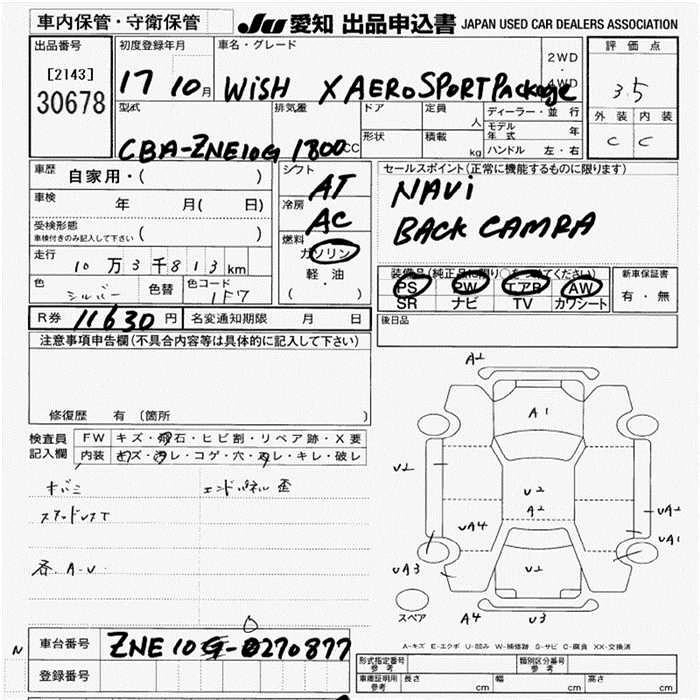 車内保管・守衛保管
JU 愛知 出品申込書 JAPAN USED CAR DEALERS ASSOCIATION
出品番号
[2143]
30678
初度登録年月
17 10月
車名・グレード
WiSH X AERO SPORT Package
2WD
・
4WD
評価点
3.5
外装 内装
C C
型式
CBA-ZNE10G
排気量
1800cc
ドア
形状
定員
人
積載
kg
ディーラー・並行
モデル年式 年
ハンドル 左・右
車歴 自家用・( )
車検 年 月( 日)
受検形態
車検付きのみ記入して下さい ( )
走行 10万3千813km
色 シルバー 色替 色コード 1F7
シフト
AT
冷房
AC
燃料
ガソリン
・
軽・油
( )
セールスポイント(正常に機能するものに限ります)
NAVi
BACK CAMRA
装備品(純正品に限り○をつけてください)
PS PW エアB AW
SR ナビ TV カワシート
新車保証書
有・無
R券 11630円 名変通知期限 月 日
後日品
注意事項申告欄(不具合内容等は具体的に記入して下さい)
修復歴 有 (箇所 )
検査員記入欄
FW キズ・飛石・ヒビ割・リペア跡・X要
内装 キズ・汚レ・コゲ・穴・スレ・キレ・破レ
エンドパネル歪
各A・U
A2
A1
U2
U2
A2
UA4
UA2
UA1
UA3
U2
A4
U3
スペア
A-キズ E-エクボ U-凹み W-補修跡 S-サビ C-腐食 XX-交換済
N
車台番号 ZNE10G-0270877
登録番号
形式指定番号 参考
類別区分番号 参考
車庫証明用 参考 長さ cm 幅 cm 高さ cm